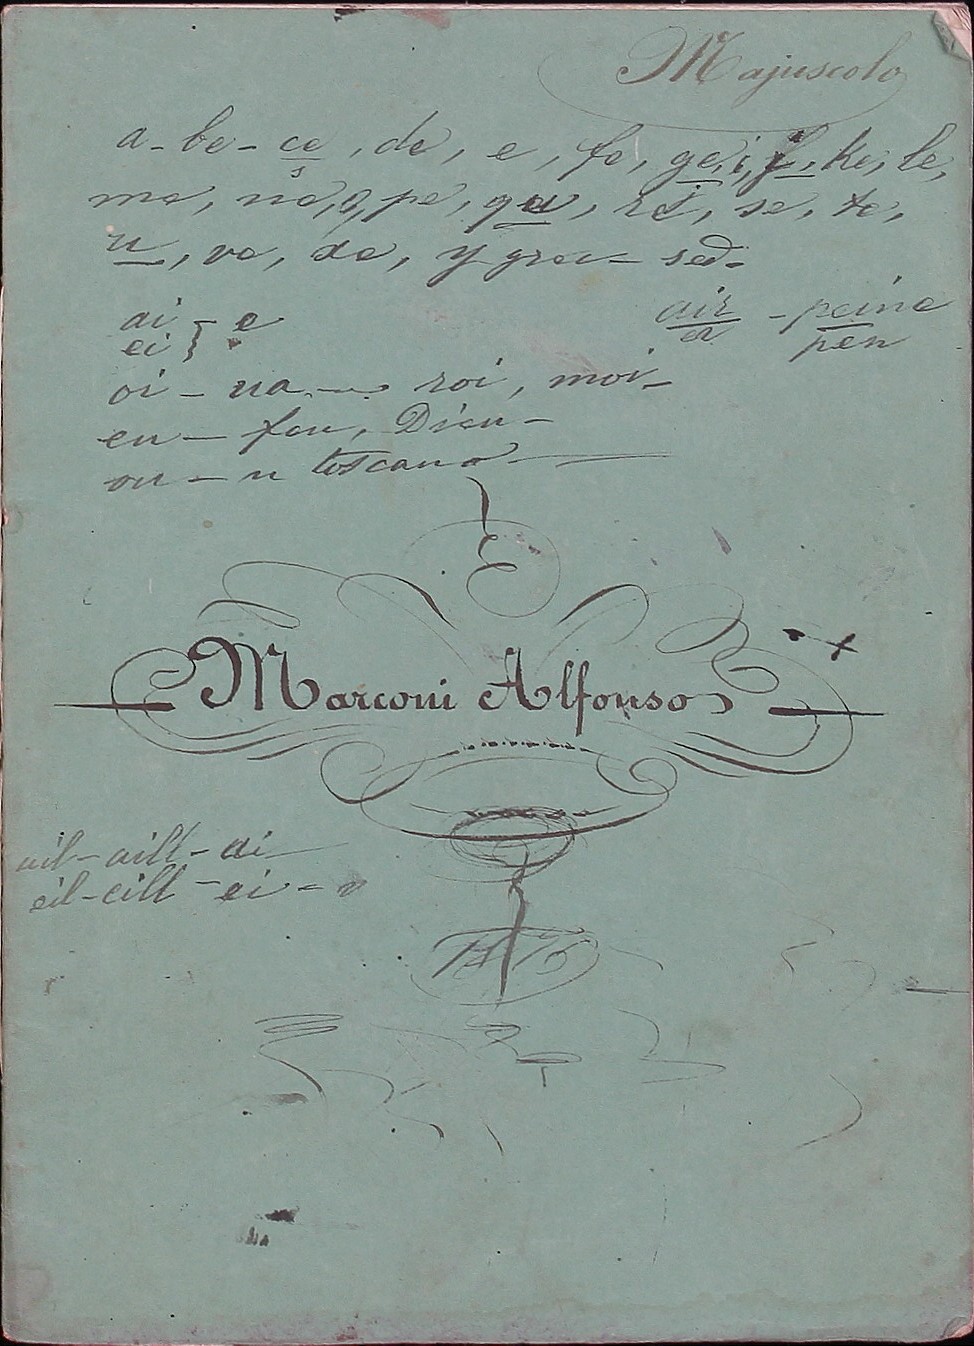 Majuscolo
a - be - ce, de, e, fe, ge, i, j, ke, le,
me, ne, o, pe, qu, re, se, te,
u, ve, xe, y grec - sed -
ai } - e
ei }
air - peine
er pen
oi - ua - roi, moi -
eu - feu, Dieu -
ou - u toscano
Marconi Alfonso
ail - aill - ai
eil - eill - ei -
1875